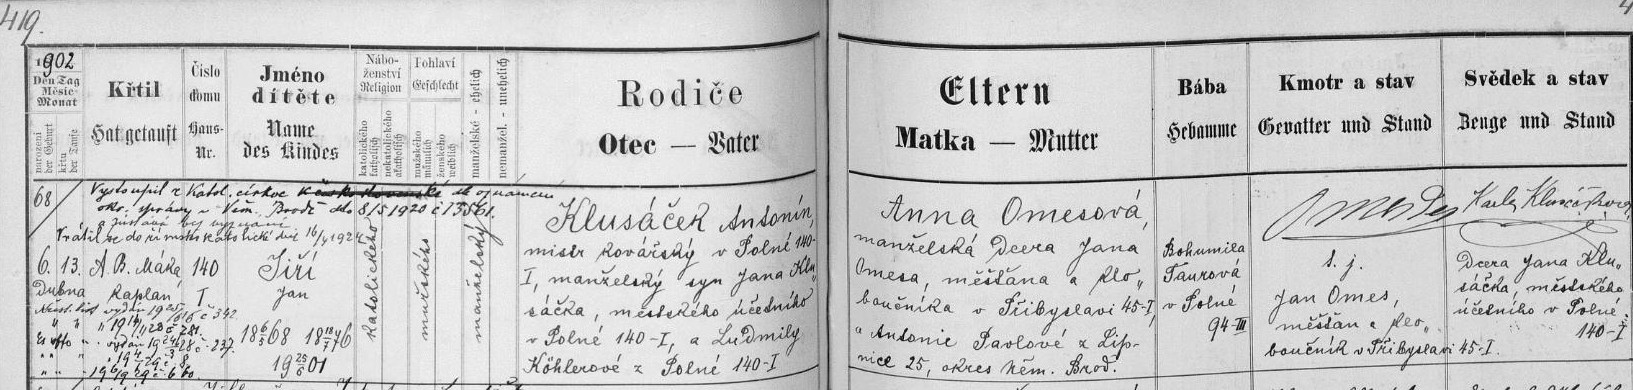 419.
1902
Den Tag
Měsíc
Monat
narození
der Geburt
křtu
der Taufe
Křtil
Hat getauft
Číslo
domu
Haus-
Nr.
Jméno
dítěte
Name
des Kindes
Nábo-
ženství
Religion
katolického
katholisch
nekatolického
akatholisch
Pohlaví
Geschlecht
mužského
männlich
ženského
weiblich
manželské - ehelich
nemanžel. - unehelich
Rodiče
Otec — Vater
Eltern
Matka — Mutter
Bába
Hebamme
Kmotr a stav
Gevatter und Stand
Svědek a stav
Zeuge und Stand
68
Vystoupil z Katol. církve
okr. správy v Něm. Brodě dto 8/5 1920 č 13561.
a zůstává bez vyznání
Vrátil se do římsko katolické dne 16/4 1924
6. 13.
Dubna
A. B. Máka
kaplan
140
I.
Jiří
Jan
18 6/5 68 18 18/7 76
19 25/6 01
katolického
mužského
manželský
Klusáček Antonín,
mistr kovářský v Polné 140-
I, manželský syn Jana Klu„
sáčka, městského účetního
v Polné 140-I, a Ludmily
Köhlerové z Polné 140-I
Anna Omesová,
manželská dcera Jana
Omesa, měšťana a klo„
boučníka v Přibyslavi 45-I,
a Antonie Pavlové z Lip-
nice 25, okres Něm. Brod.
Bohumila
Taurová
v Polné
94-III
Omes
t. j.
Jan Omes,
měšťan a klo„
boučník v Přibyslavi 45-I.
Klusáčková
Dcera Jana Klu„
sáčka, městského
účetního v Polné
140-I